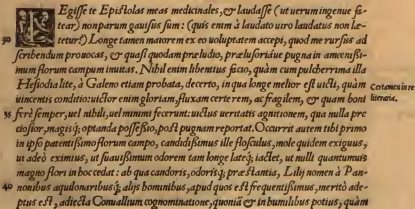 LEgisse te Epistolas meas medicinales, & laudasse (ut uerum ingenue fa-
tear) nonparum gauisus sum: (quis enim à laudato uiro laudatus non læ-
30 tetur?) Longe tamen maiorem ex eo uoluptatem accepi, quod me rursus ad
scribendum prouocas, & quasi quodam præludio, prælusoriaue pugna in amœnissi-
mum florum campum inuitas. Nihil enim libentius facio, quàm cum pulcherrima illa
Hesiodia lite, à Galeno etiam probata, decerto, in qua longe melior est uicti, quàm
Certamen in re
literaria.
uincentis conditio: uictor enim gloriam, fluxam certe rem, ac fragilem, & quam boni
35 ferè semper, uel nihili, uel minimi fecerunt: uictus ueritatis agnitionem, qua nulla pre
ciosior, magisq; optanda possessio, post pugnam reportat. Occurrit autem tibi primo
in ipso patentissimo florum campo, candidissimus ille flosculus, mole quidem exiguus,
ut adeò eximius, ut suauissimum odorem tam longe lateq; iactet, ut nulli quantumuis
magno flori in hoc cedat: ab qua candoris, odorisq; præstantia, Lilij nomen à Pan-
40 nonibus aquilonaribusq; alijs hominibus, apud quos est frequentissimus, meritò ade-
ptus est, adiecta Conuallium cognominatione, quoniã & in humilibus potius, quàm